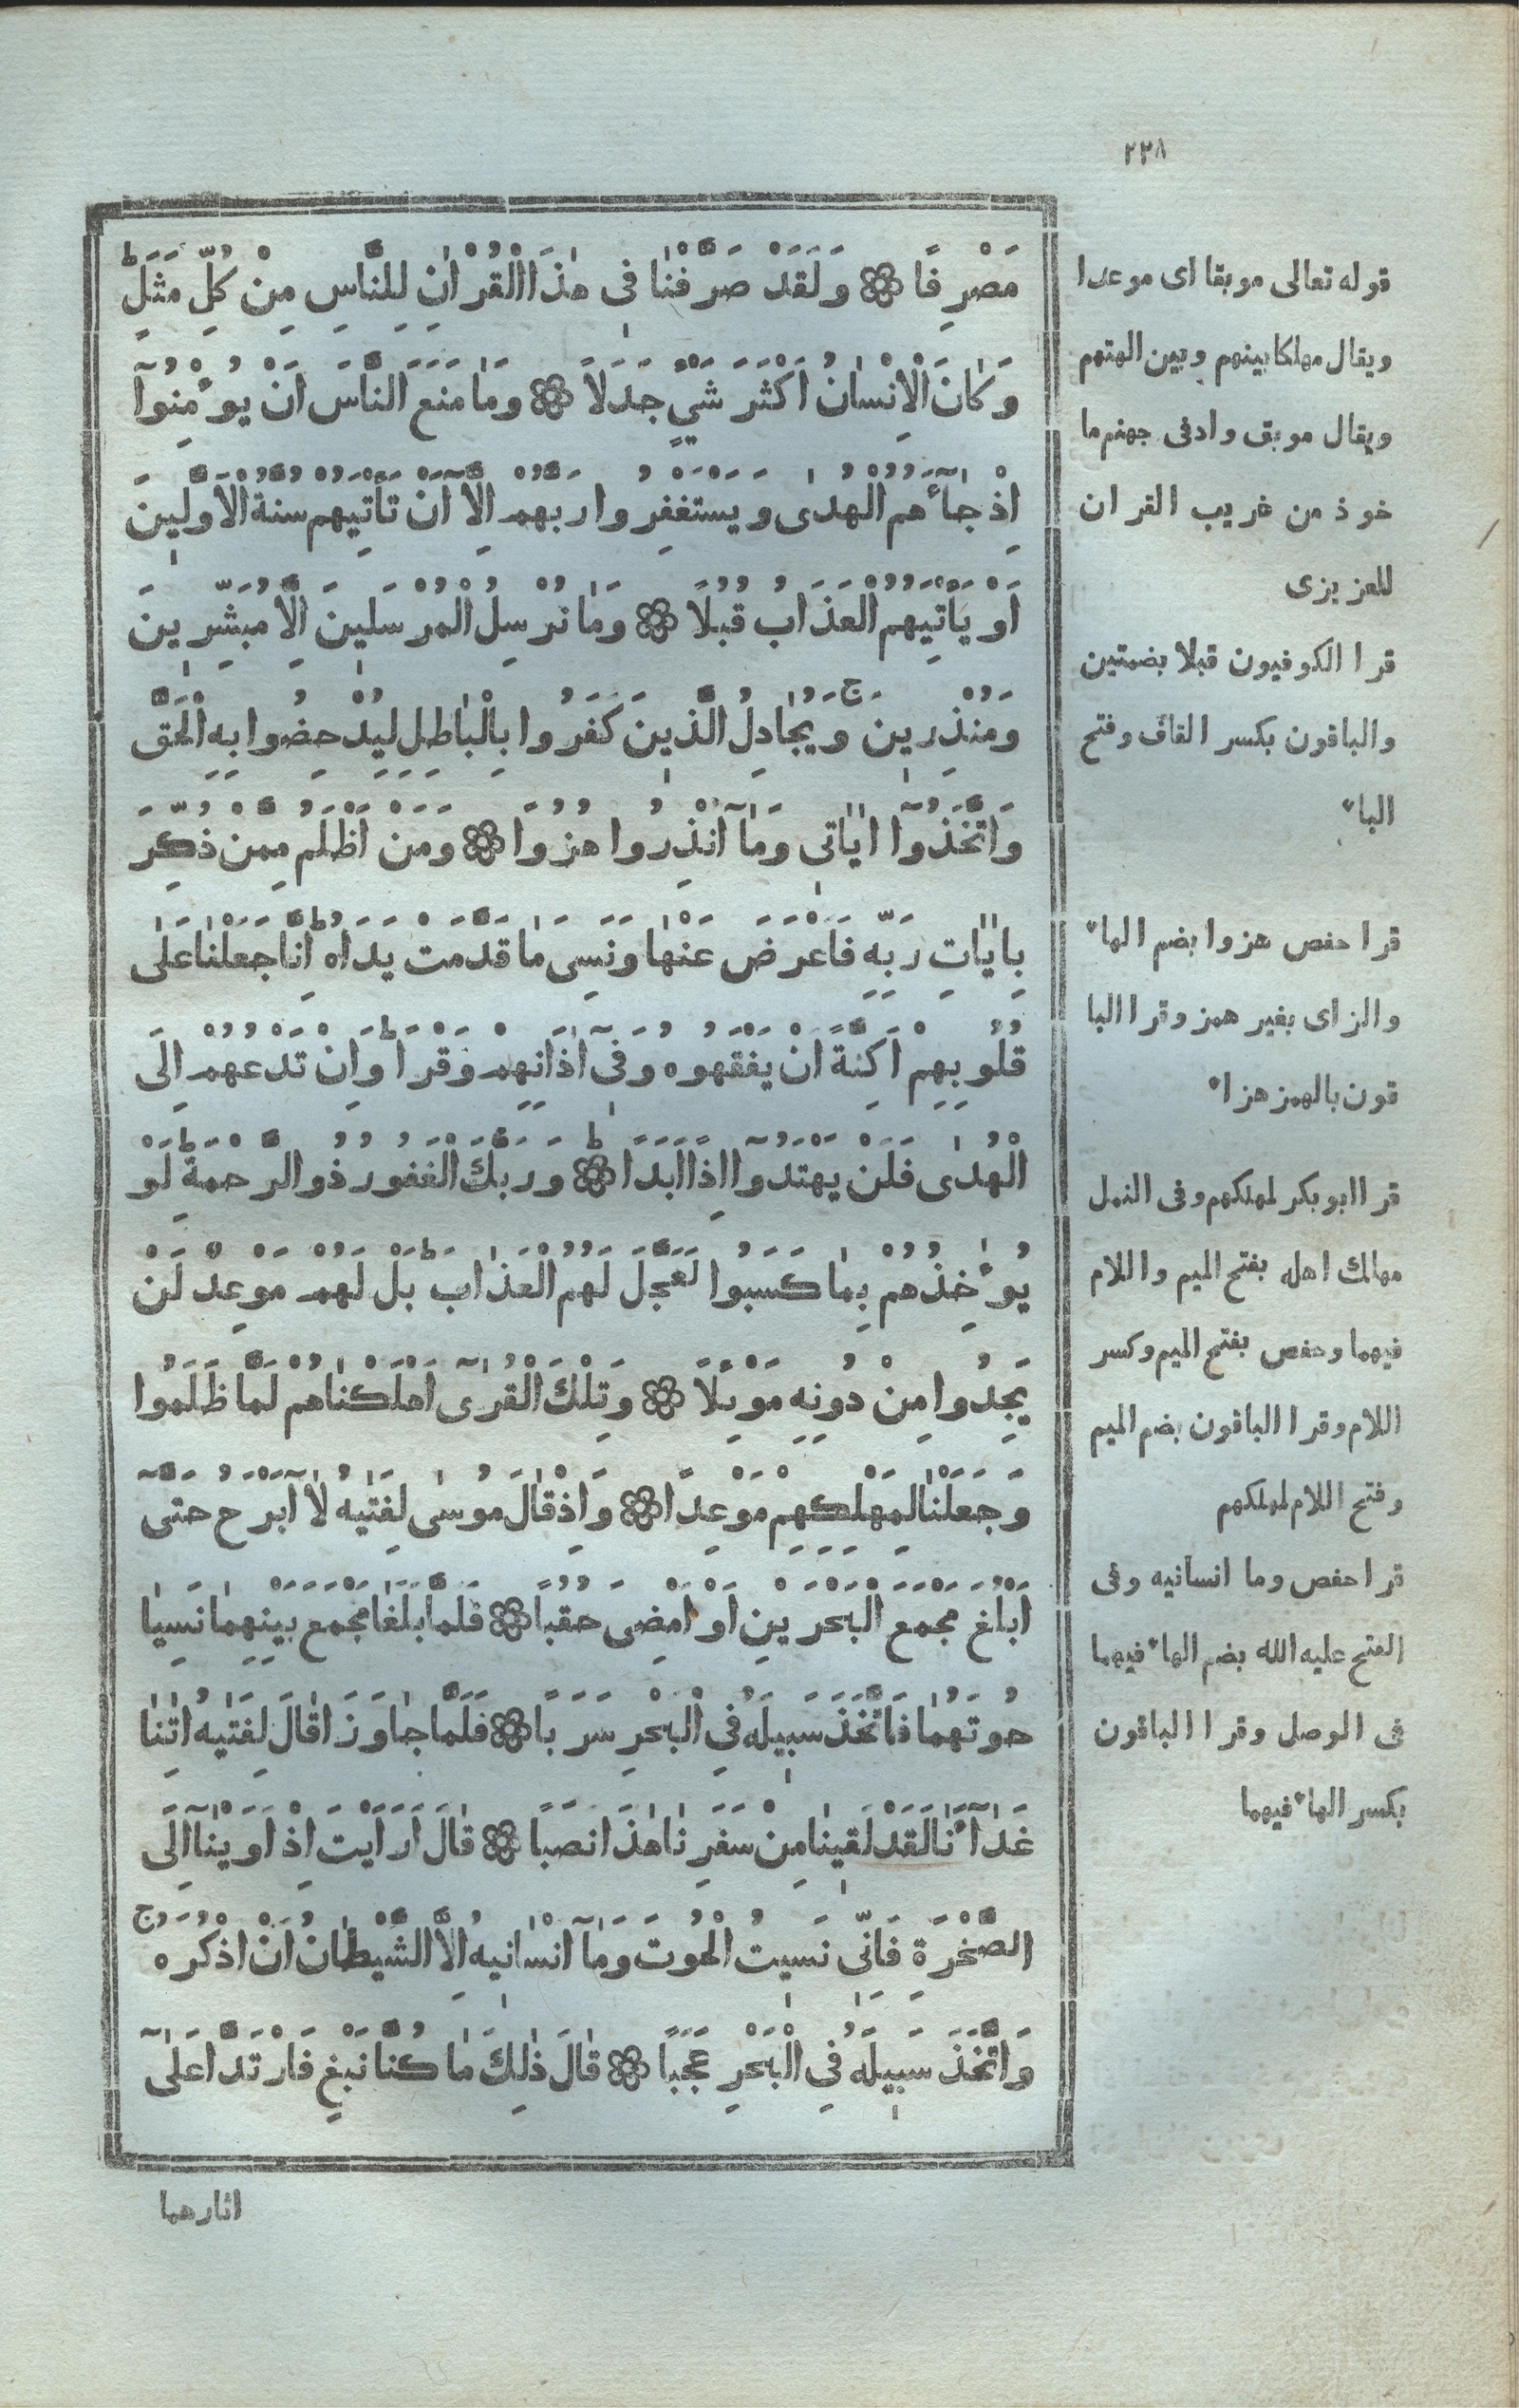 ٢٣٨
مَصْرِفًا ۝ وَلَقَدْ صَرَّفْنٰا فِى هٰذَا الْقُرْاٰنِ لِلنَّاسِ مِنْ كُلِّ مَثَلٍ ط
وَكٰانَ الْاِنْسٰانُ اَكْثَرَ شَيْءٍ جَدَلًا ۝ وَمٰا مَنَعَ النَّاسَ اَنْ يُؤْمِنُوآ
اِذْ جٰآءَهُمُ الْهُدٰى وَيَسْتَغْفِرُوا رَبَّهُمْ اِلَّآ اَنْ تَأْتِيَهُمْ سُنَّةُ الْاَوَّلِينَ
اَوْ يَأْتِيَهُمُ الْعَذَابُ قُبُلًا ۝ وَمٰا نُرْسِلُ الْمُرْسَلِينَ اِلَّا مُبَشِّرِينَ
وَمُنْذِرِينَ ج وَيُجٰادِلُ الَّذِينَ كَفَرُوا بِالْبٰاطِلِ لِيُدْحِضُوا بِهِ الْحَقَّ
وَاتَّخَذُوآ اٰيٰاتِى وَمٰآ اُنْذِرُوا هُزُوًا ۝ وَمَنْ اَظْلَمُ مِمَّنْ ذُكِّرَ
بِاٰيٰاتِ رَبِّهِ فَاَعْرَضَ عَنْهٰا وَنَسِىَ مٰا قَدَّمَتْ يَدَاهُ ط اِنَّا جَعَلْنٰا عَلٰى
قُلُوبِهِمْ اَكِنَّةً اَنْ يَفْقَهُوهُ وَفِىٓ اٰذٰانِهِمْ وَقْرًا ط وَاِنْ تَدْعُهُمْ اِلَى
الْهُدٰى فَلَنْ يَهْتَدُوآ اِذًا اَبَدًا ط ۝ وَرَبُّكَ الْغَفُورُ ذُو الرَّحْمَةِ ط لَوْ
يُؤٰخِذُهُمْ بِمٰا كَسَبُوا لَعَجَّلَ لَهُمُ الْعَذٰابَ ط بَلْ لَهُمْ مَوْعِدٌ لَنْ
يَجِدُوا مِنْ دُونِهِ مَوْئِلًا ۝ وَتِلْكَ الْقُرٰٓى اَهْلَكْنٰاهُمْ لَمَّا ظَلَمُوا
وَجَعَلْنٰا لِمَهْلِكِهِمْ مَوْعِدًا ۝ وَاِذْ قٰالَ مُوسٰى لِفَتٰيهُ لٰآ اَبْرَحُ حَتّٰىٓ
اَبْلُغَ مَجْمَعَ الْبَحْرَيْنِ اَوْ اَمْضِىَ حُقُبًا ۝ فَلَمَّا بَلَغٰا مَجْمَعَ بَيْنِهِمٰا نَسِيٰا
حُوتَهُمٰا فَاتَّخَذَ سَبِيلَهُ فِى الْبَحْرِ سَرَبًا ۝ فَلَمَّا جٰاوَزَا قٰالَ لِفَتٰيهُ اٰتِنٰا
غَدٰآءَنٰا لَقَدْ لَقِينٰا مِنْ سَفَرِنٰا هٰذَا نَصَبًا ۝ قٰالَ اَرَاَيْتَ اِذْ اَوَيْنٰآ اِلَى
الصَّخْرَةِ فَاِنِّى نَسِيتُ الْحُوتَ وَمٰآ اَنْسٰانِيهُ اِلَّا الشَّيْطٰانُ اَنْ اَذْكُرَهُ ج
وَاتَّخَذَ سَبِيلَهُ فِى الْبَحْرِ عَجَبًا ۝ قٰالَ ذٰلِكَ مٰا كُنَّا نَبْغِ فَارْتَدَّا عَلٰىٓ
اثارهما
قوله تعالى موبقا اى موعدا
ويقال مهلكا بينهم وبين الهتهم
ويقال موبق وادفى جهنم ما
خوذ من غريب القران
للعزيزى
قرا الكوفيون قبلا بضمتين
والباقون بكسر القاف وفتح
الباء
قرا حفص هزوا بضم الهاء
والزاى بغير همز وقرا البا
قون بالهمز هزاء
قرا ابو بكر لمهلكهم وفى النمل
مهالك اهله بفتح الميم واللام
فيهما وحفص بفتح الميم وكسر
اللام وقرا الباقون بضم الميم
وفتح اللام لمهلكهم
قرا حفص وما انسانيه وفى
الفتح عليه الله بضم الهاء فيهما
فى الوصل وقرا الباقون
بكسر الهاء فيهما